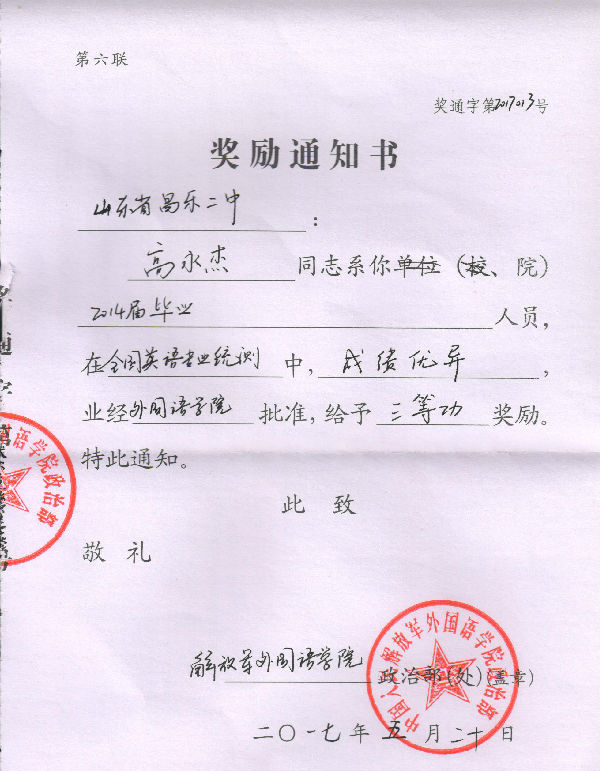 第六联
奖通字第2017013号
奖励通知书
山东省昌乐二中：
高永杰 同志系你单位（校、院）
2014届毕业 人员，
在全国英语专业统测中，成绩优异，
业经外国语学院批准，给予三等功奖励。
特此通知。
此致
敬礼
解放军外国语学院 政治部(处)(盖章)
二〇一七年五月二十日
中国人民解放军外国语学院政治部
语学院政治部